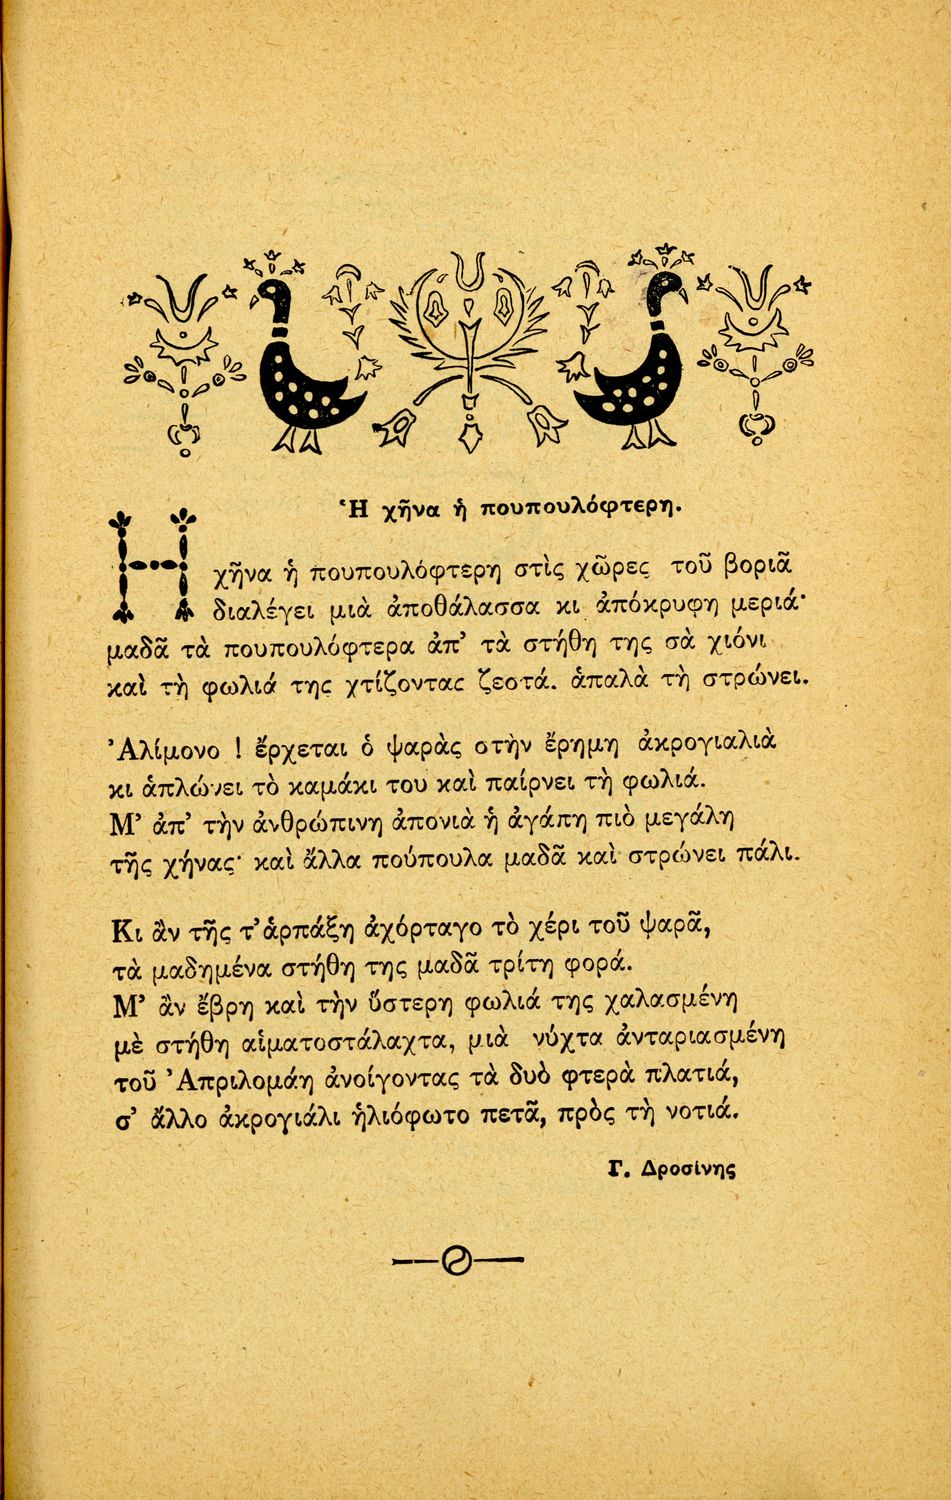 Ἡ χῆνα ἡ πουπουλόφτερη.
Η χῆνα ἡ πουπουλόφτερη στὶς χῶρες τοῦ βοριᾶ
διαλέγει μιὰ ἀποθάλασσα κι ἀπόκρυφη μεριά·
μαδᾶ τὰ πουπουλόφτερα ἀπ' τὰ στήθη της σὰ χιόνι
καὶ τὴ φωλιά της χτίζοντας ζεστά. ἁπαλὰ τὴ στρώνει.
Ἀλίμονο ! ἔρχεται ὁ ψαρὰς στὴν ἔρημη ἀκρογιαλιὰ
κι ἁπλώνει τὸ καμάκι του καὶ παίρνει τὴ φωλιά.
Μ' ἀπ' τὴν ἀνθρώπινη ἀπονιὰ ἡ ἀγάπη πιὸ μεγάλη
τῆς χήνας· καὶ ἄλλα πούπουλα μαδᾶ καὶ στρώνει πάλι.
Κι ἂν τῆς τ' ἁρπάξη ἀχόρταγο τὸ χέρι τοῦ ψαρᾶ,
τὰ μαδημένα στήθη της μαδᾶ τρίτη φορά.
Μ' ἂν ἔβρη καὶ τὴν ὕστερη φωλιά της χαλασμένη
μὲ στήθη αἱματοστάλαχτα, μιὰ νύχτα ἀνταριασμένη
τοῦ Ἀπριλομάη ἀνοίγοντας τὰ δυὸ φτερὰ πλατιά,
σ' ἄλλο ἀκρογιάλι ἡλιόφωτο πετᾶ, πρὸς τὴ νοτιά.
Γ. Δροσίνης